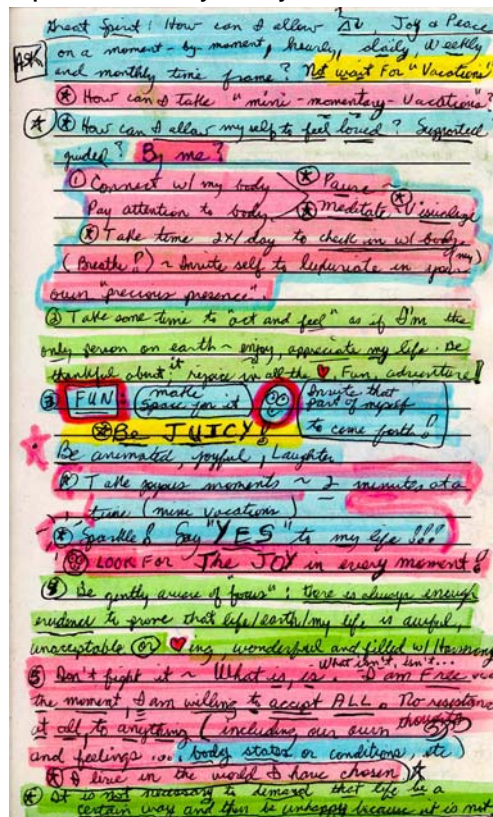 Great Spirit! How can I allow Joy & Peace
ASK on a moment-by-moment, hourly, daily, weekly
and monthly time frame? Not wait For "Vacations"
How can I take "mini-momentary-Vacations"?
How can I allow myself to feel loved? Supported
guided? By me?
① Connect w/ my body Pause ~
Pay attention to body Meditate Visualize
Take time 2x/day to check in w/ body
(Breathe!) ~ Invite self to luxuriate in your (my)
own "precious presence"
② Take some time to "act and feel" as if I'm the
only person on earth ~ enjoy, appreciate my life. Be
thankful about it, rejoice in all the ♥, Fun, adventure!
③ FUN: make space for it Invite that part of myself to come forth!
Be JUICY!
Be animated, joyful, Laughter
Take joyous moments ~ 2 minutes at a
time (mini vacations)
Sparkle! Say "YES" to my life!!!
LOOK FOR The JOY in every moment!
Be gently aware of "focus": there is always enough
evidence to prove that life/earth/my life is awful,
unacceptable or ♥ing, wonderful and filled w/ Harmony
⑤ Don't fight it ~ What is, is. What isn't, isn't... I am Free
the moment, I am willing to accept ALL. No resistance
at all, to anything (including our own thoughts
and feelings ... body states or conditions, etc)
I live in the world I have chosen
It is not necessary to demand that life be a
certain way and then be unhappy because it is not